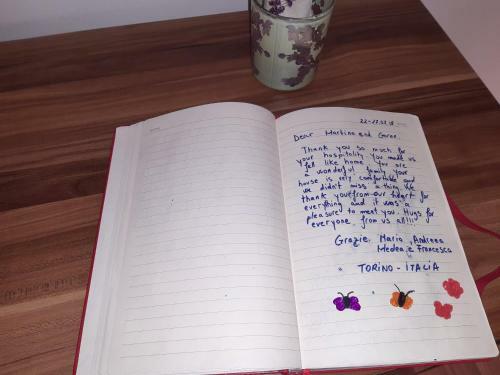 Dear Martina and Goran,
Thank you so much for
your hospitality. You made us
fell like home. You are
a wonderful family. Your
house is very comfortable and
we didn't miss a thing. We
thank you from our heart for
everything and it was a
pleasure to meet you. Hugs for
everyone from us all!!!
Grazie, Mario, Andreea
Medea e Francesco
TORINO - ITALIA